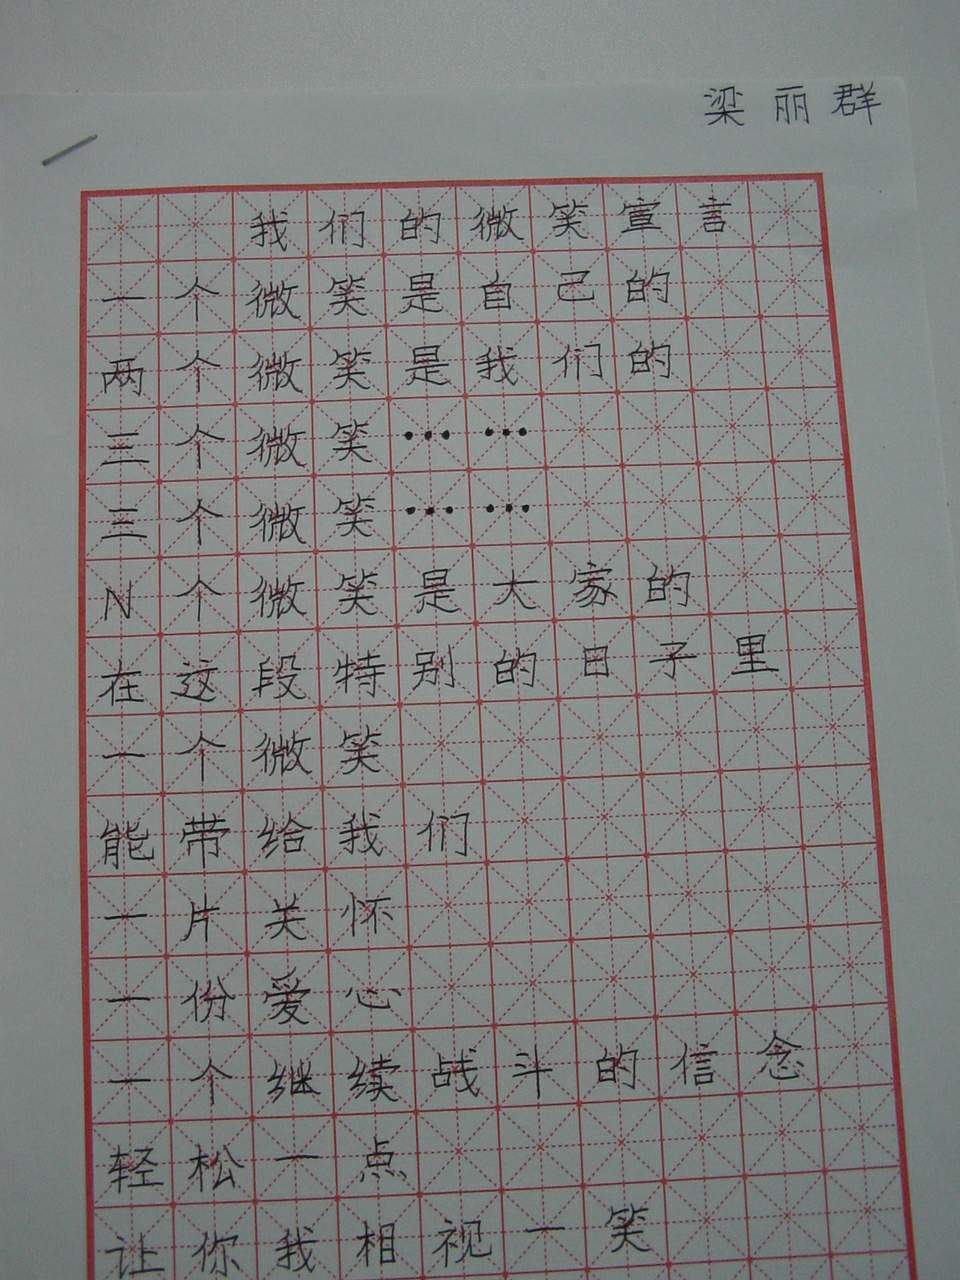 梁丽群
我们的微笑宣言
一个微笑是自己的
两个微笑是我们的
三个微笑……
三个微笑……
N个微笑是大家的
在这段特别的日子里
一个微笑
能带给我们
一片关怀
一份爱心
一个继续战斗的信念
轻松一点
让你我相视一笑